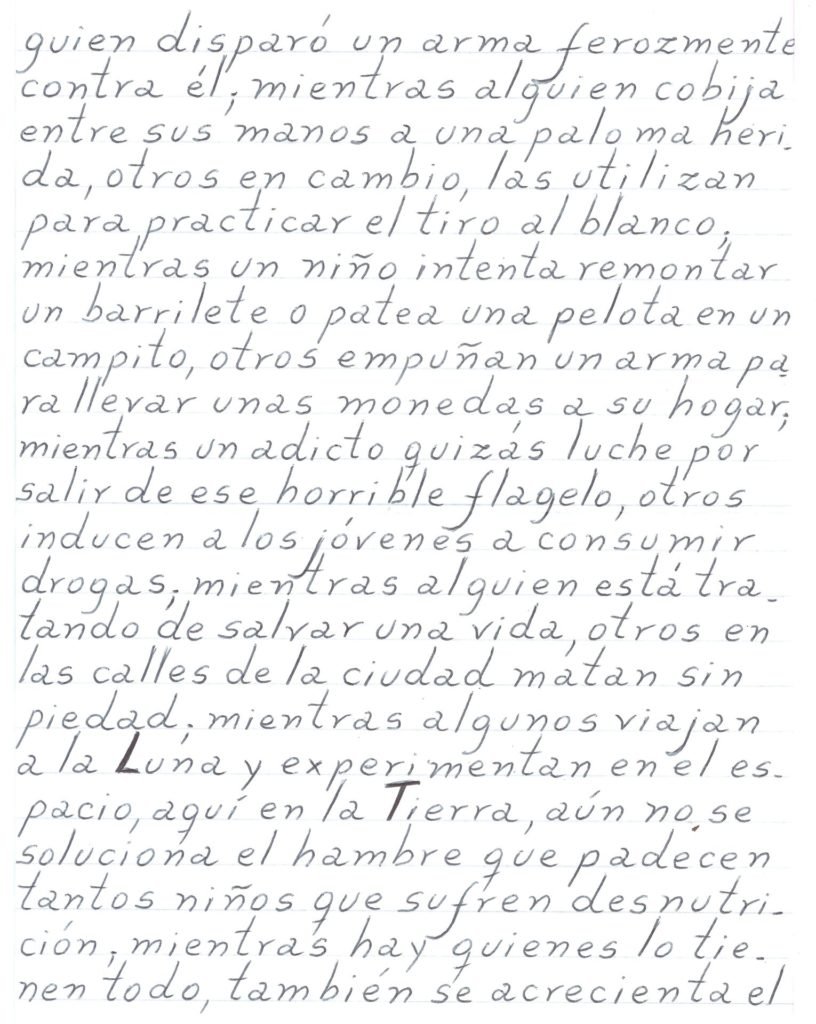 guien disparó un arma ferozmente
contra él; mientras alguien cobija
entre sus manos a una paloma heri-
da, otros en cambio, las utilizan
para practicar el tiro al blanco;
mientras un niño intenta remontar
un barrilete o patea una pelota en un
campito, otros empuñan un arma pa
ra llevar unas monedas a su hogar;
mientras un adicto quizás luche por
salir de ese horrible flagelo, otros
inducen a los jóvenes a consumir
drogas; mientras alguien está tra-
tando de salvar una vida, otros en
las calles de la ciudad matan sin
piedad; mientras algunos viajan
a la Luna y experimentan en el es-
pacio, aquí en la Tierra, aún no se
soluciona el hambre que padecen
tantos niños que sufren desnutri-
ción; mientras hay quienes lo tie-
nen todo, también se acrecienta el